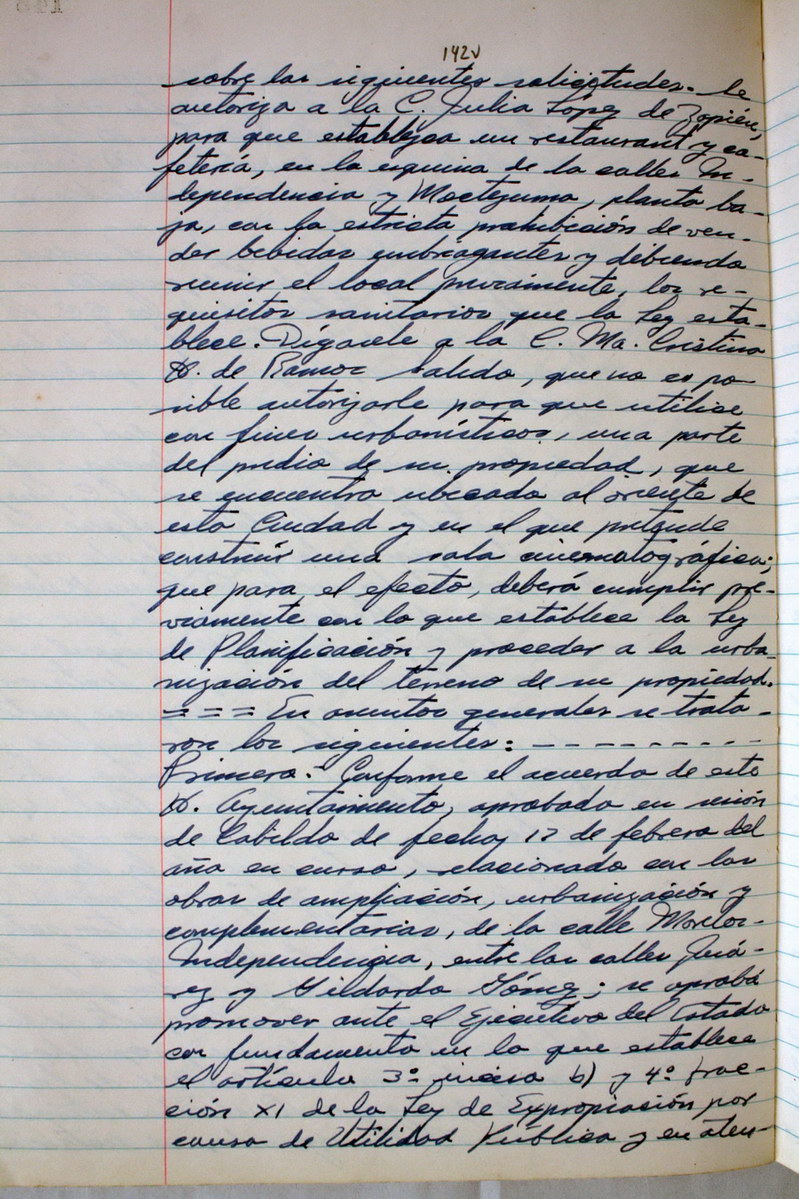 142v
sobre las siguientes solicitudes. Se
autoriza a la C. Julia López de Zopién,
para que establezca un restaurant y ca-
fetería, en la esquina de la calles In-
dependencia y Moctezuma, planta ba-
ja, con la estricta prohibición de ven-
der bebidas embriagantes y debiendo
reunir el local previamente, los re-
quisitos sanitarios que la Ley esta-
blece. Dígasele a la C. Ma. Cristina
H. de Ramos Salido, que no es po-
sible autorizarle para que utilice
con fines urbanísticos, una parte
del predio de su propiedad, que
se encuentra ubicado al oriente de
esta Ciudad y en el que pretende
construir una sala cinematográfica;
que para el efecto, deberá cumplir pre-
viamente con lo que establece la Ley
de Planificación y proceder a la urba-
nización del terreno de su propiedad.
= = = En asuntos generales se trata-
ron los siguientes: - - - - - - - - -
Primero.- Conforme el acuerdo de este
H. Ayuntamiento, aprobado en sesión
de Cabildo de fecha, 12 de febrero del
año en curso, relacionado con las
obras de ampliación, urbanización y
complementarias, de la calle Morelos-
Independencia, entre las calles Juá-
rez y Gildardo Gómez; se aprobó
promover ante el Ejecutivo del Estado
con fundamento en lo que establece
el artículo 3º inciso b) y 4º frac-
ción XI de la Ley de Expropiación por
causa de Utilidad Pública y en aten-